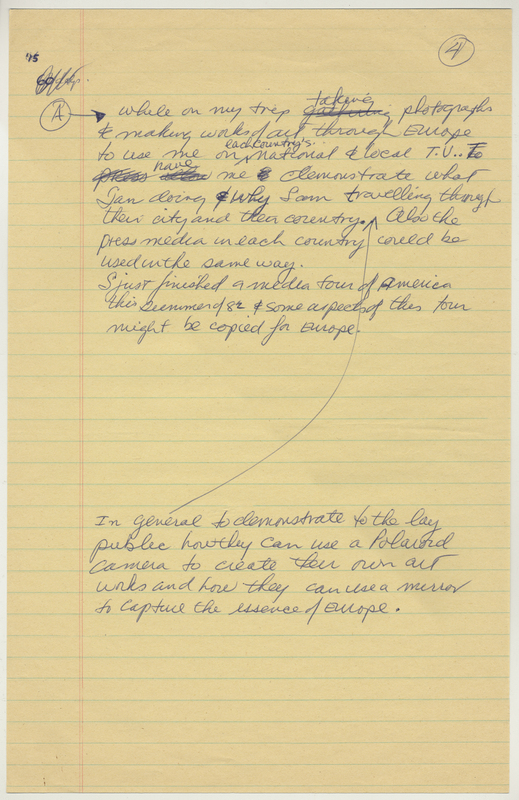 '75
4
A
taking
while on my trip gathering photographs
& making works of art through Europe
each country's
to use me on national & local T.V.. To
have
press me & demonstrate what
I am doing & why I am travelling through
their city and their country. Also the
press media in each country could be
used in the same way.
I just finished a media tour of America
this summer of 82 & some aspects of this tour
might be copied for Europe.
In general to demonstrate to the lay
public how they can use a Polaroid
camera to create their own art
works and how they can use a mirror
to capture the essence of Europe.